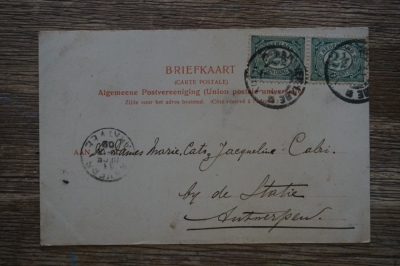 BRIEFKAART
(CARTE POSTALE)
Algemeene Postvereeniging (Union postale universelle)
Zijde voor het adres bestemd. (Côté réservé à
2½ 2½
AAN Mesdames Marie, Cato, Jacqueline Cabi.
by de Statie
Antwerpen.